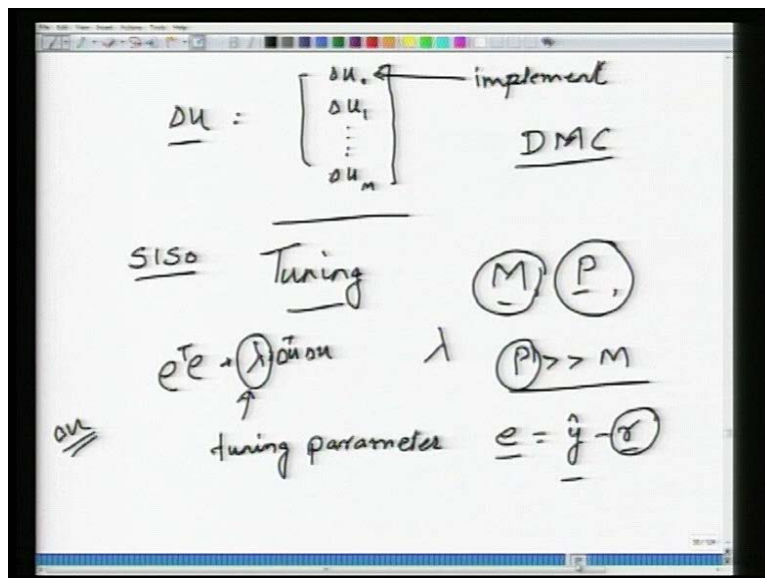 File Edit View Insert Actions Tools Help
Δu₀ ← implement
Δu = Δu₁
⋮
Δu_M
DMC
SISO Tuning M, P,
eᵀe + λ Δuᵀ Δu λ P >> M
Δu tuning parameter e = ŷ - r